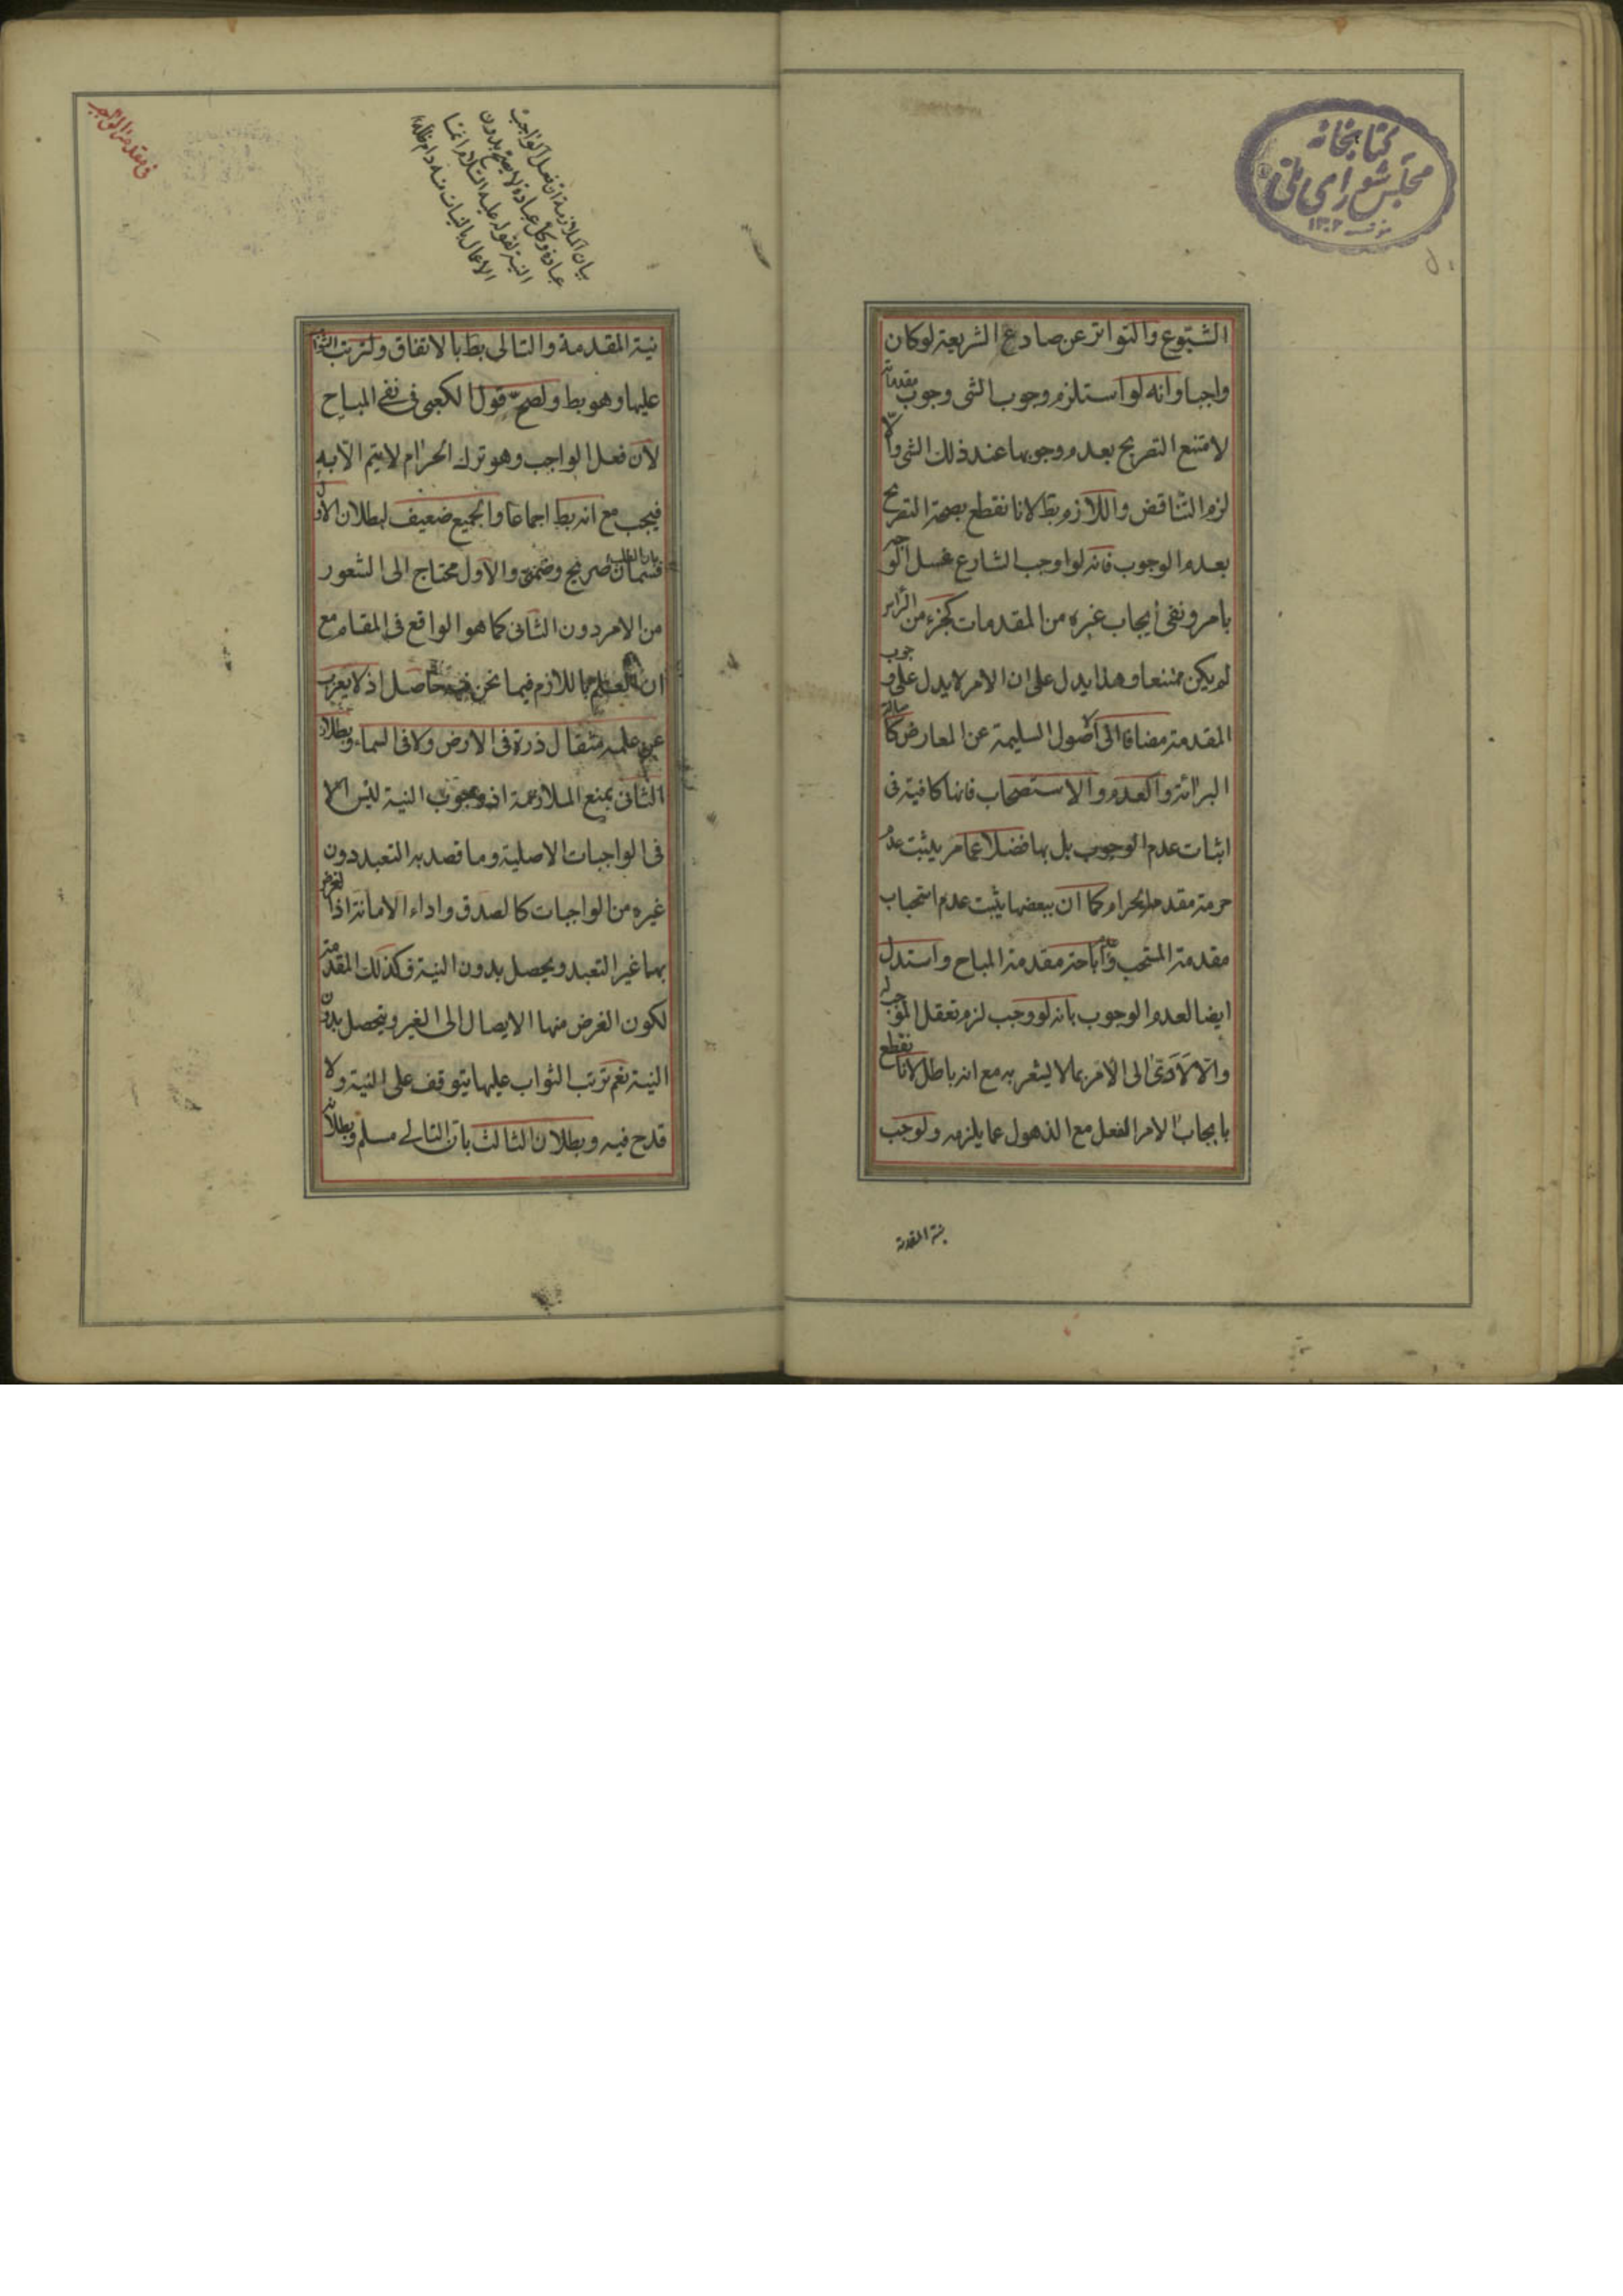 كتابخانه
مجلس شورای ملی
۱۳۰۲
الشيوع والتواتر عن صادع الشريعة لو كان
واجبا وانه لو استلزم وجوب الشئ وجوب مقدماته
لامتنع التصريح بعدم وجوبها عند ذلك الشئ والّا
لزم التناقض واللازم بط لانا نقطع بصحة التصريح
بعدم الوجوب فانه لو اوجب الشارع غسل الوجه
بامر ونفى ايجاب غيره من المقدمات كجزء من الراس
لم يكن ممتنعا وهذا يدل على ان الامر لا يدل على وجوب
المقدمة مضافا الى الاصول السليمة عن المعارض كاصالة
البرائة والعدم والاستصحاب فانها كافية فى
اثبات عدم الوجوب بل بها فضلا عما مر يثبت عدم
حرمة مقدمة الحرام كما ان ببعضها يثبت عدم استحباب
مقدمة المستحب وعدم اباحة مقدمة المباح واستدل
ايضا لعدم الوجوب بانه لو وجب لزم تعقل الموجب له
والّا لادّى الى الامر بما لا يشعر به مع انه باطل لانا نقطع
بايجاب الامر الفعل مع الذهول عما يلزمه ولوجب
نية المقدمة
فى مقدمة الواجب
بيان الملازمة ان فعل الواجب
عبادة وكل عبادة لا يصح بدون
النية لقوله عليه السلام انما
الاعمال بالنيات منه دام ظله
نية المقدمة والتالى بط بالاتفاق ولترتب الثواب
عليها وهو بط ولصحّ قول الكعبى فى نفى المباح
لان فعل الواجب وهو ترك الحرام لا يتم الّا به
فيجب مع انه بط اجماعا والجميع ضعيف لبطلان الاول
بان الطلب قسمان صريح وضمنى والاول محتاج الى الشعور
من الامر دون الثانى كما هو الواقع فى المقام مع
ان العلم باللازم فيما نحن فيه حاصل اذ لا يعزب
عن علمه مثقال ذرة فى الارض ولا فى السماء وبطلان
الثانى بمنع الملازمة اذ وجوب النية ليس الا
فى الواجبات الاصلية وما قصد به التعبد دون
غيره من الواجبات كالصدق واداء الامانة اذ الغرض
بهما غير التعبد ويحصل بدون النية فكذلك المقدمة
لكون الغرض منها الايصال الى الغير ويتحصل بدون
النية نعم ترتب الثواب عليها يتوقف على النية ولا
قدح فيه وبطلان الثالث بان التالى مسلم وبطلانه